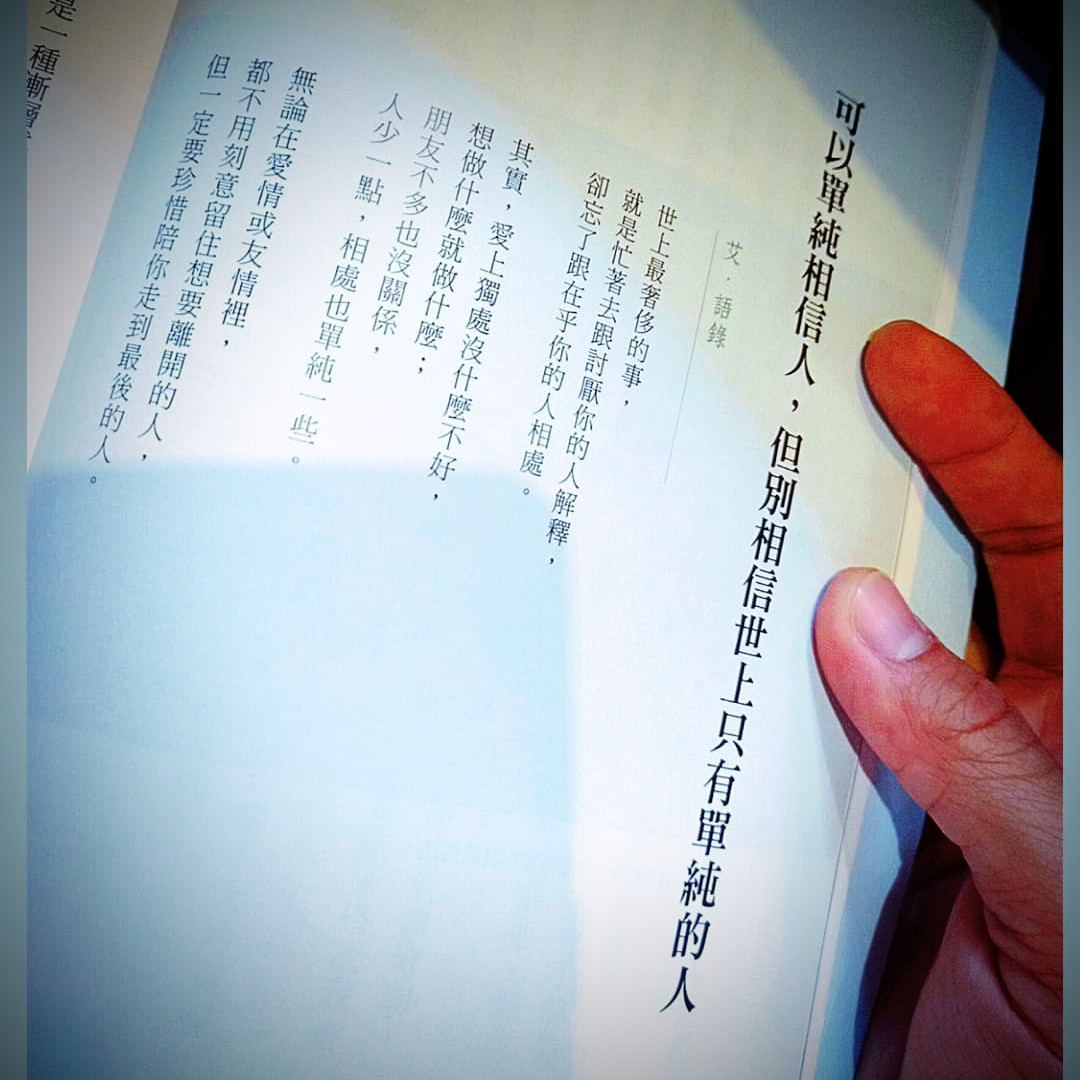 可以單純相信人，但別相信世上只有單純的人
艾．語錄
世上最奢侈的事，
就是忙著去跟討厭你的人解釋，
卻忘了跟在乎你的人相處。
其實，愛上獨處沒什麼不好，
想做什麼就做什麼；
朋友不多也沒關係，
人少一點，相處也單純一些。
無論在愛情或友情裡，
都不用刻意留住想要離開的人，
但一定要珍惜陪你走到最後的人。
是一種漸層